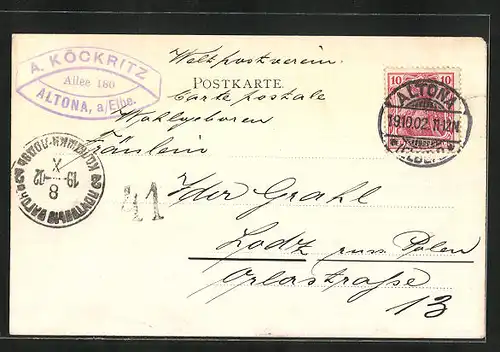 A. KÖCKRITZ
Allee 180
ALTONA, a/Elbe.
Weltpostverein
POSTKARTE.
Carte postale
Wohlgeboren
Fräulein
Ida Grahl
Lodz russ. Polen
Orlastraße
13
41
10 10
ALTONA
19.10.02. 11-12N
19 X 02
8